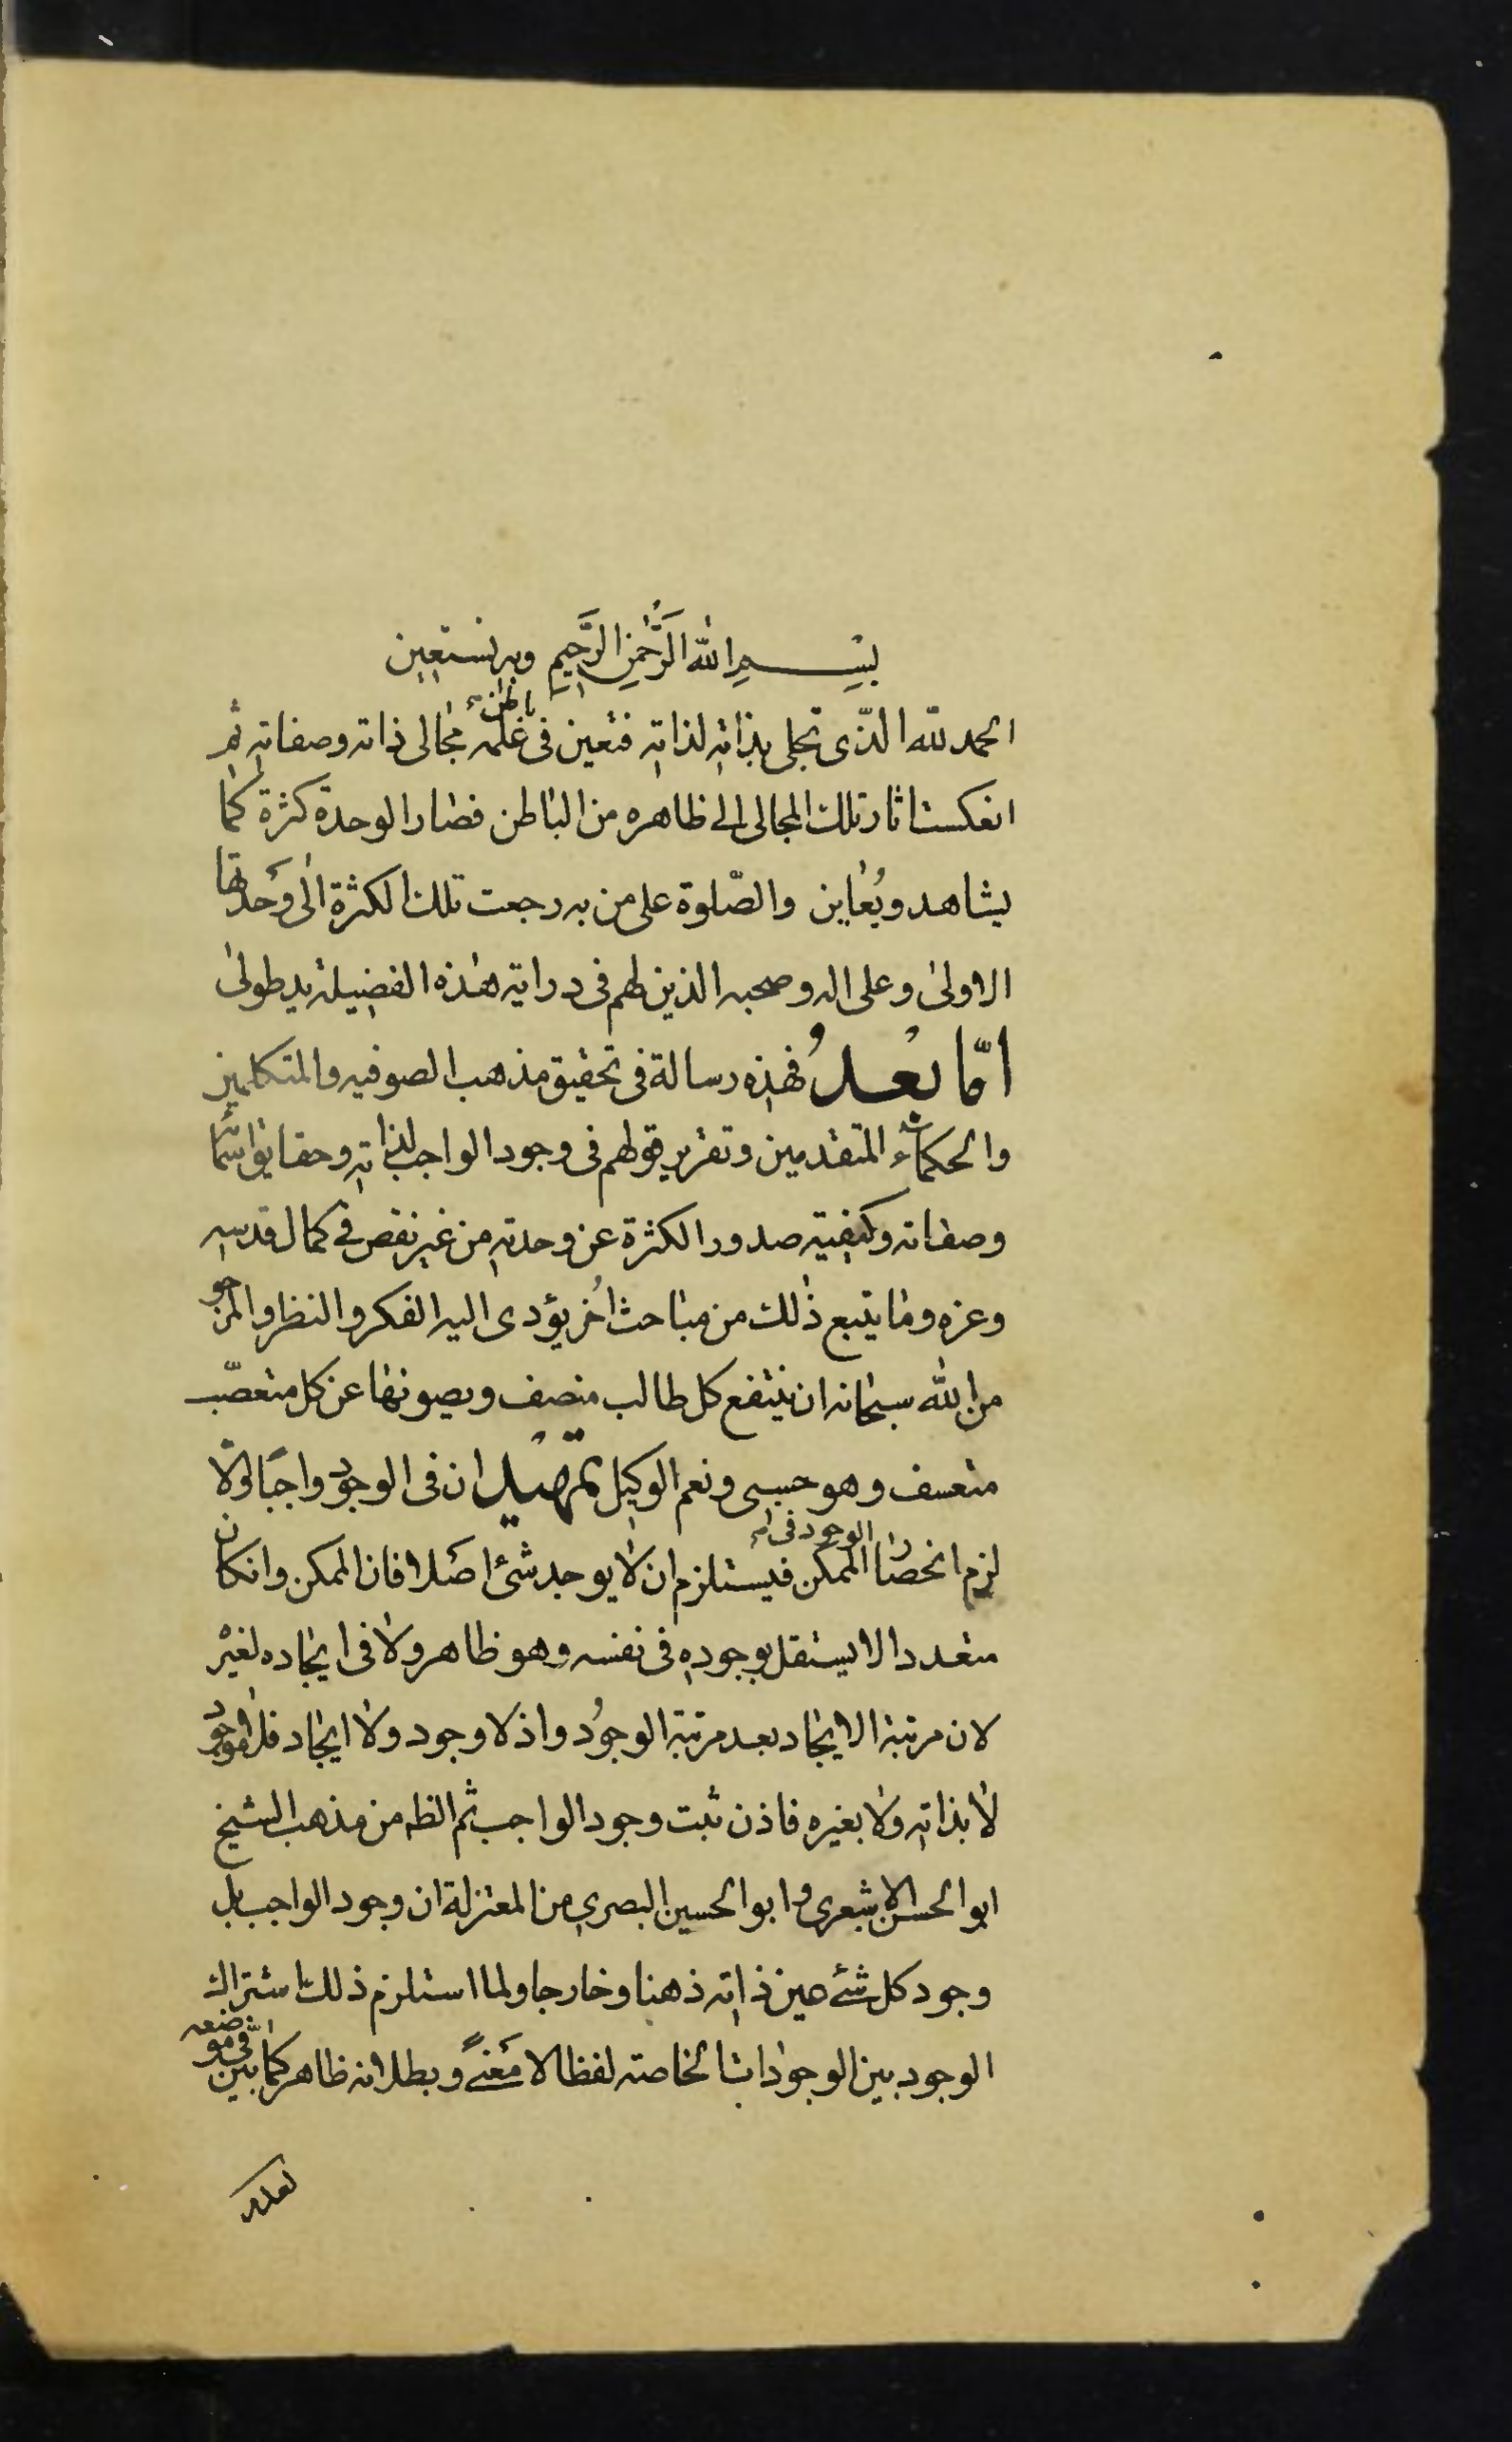 بِسْمِ اللّٰهِ الرَّحْمٰنِ الرَّحِيمِ وبه نستعين
الحمد لله الذّى تجلى بذاته لذاته فتعين فى باطن علمه مجالى ذاته وصفاته ثم
انعكست اثار تلك المجالى الى ظاهره من الباطن فصار الوحدة كثرة كما
يشاهد ويُعاين والصّلوة على من به رجعت تلك الكثرة الى وحدتها
الاولى وعلى اله وصحبه الذين لهم فى دراية هذه الفضيلة يد طولى
امّا بعدُ فهذه رسالة فى تحقيق مذهب الصوفيه والمتكلمين
والحكماء المتقدمين وتقرير قولهم فى وجود الواجب لذاته وحقايق اسمائه
وصفاته وكيفية صدور الكثرة عن وحدته من غير نقص فى كمال قدسه
وعزه وما يتبع ذلك من مباحث اُخر يؤدى اليه الفكر والنظر والمرجو
من الله سبحانه ان ينتفع كل طالب منصف ويصونها عن كل متعصّب
متعسف وهو حسبى ونعم الوكيل تمهيد ان فى الوجود واجبًا والّا
لزم انحصار الوجود فى الممكن فيستلزم ان لا يوجد شئ اصلا فان الممكن وان كان
متعددا لا يستقل بوجوده فى نفسه وهو ظاهر ولا فى ايجاده لغيره
لان مرتبة الايجاد بعد مرتبة الوجود واذ لا وجود ولا ايجاد فلا موجود
لا بذاته ولا بغيره فاذن ثبت وجود الواجب ثم الظ من مذهب الشيخ
ابو الحسن الاشعرى و ابو الحسين البصرى من المعتزلة ان وجود الواجب بل
وجود كل شئ عين ذاته ذهنا وخارجا ولما استلزم ذلك اشتراك
الوجود بين الوجودات الخاصة لفظا لا معنىً وبطلانه ظاهر كما بيّن فى موضعه